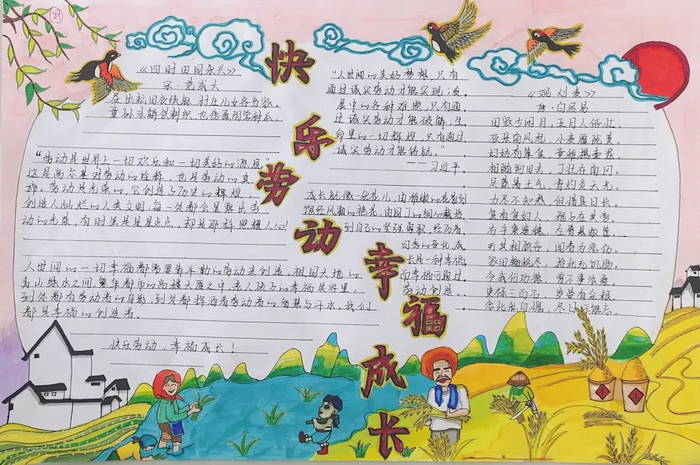 快乐劳动
幸福成长
《四时田园杂兴》
宋·范成大
昼出耘田夜绩麻,村庄儿女各当家。
童孙未解供耕织,也傍桑阴学种瓜。
"劳动是世界上一切欢乐和一切美好的源泉"
这是高尔基对劳动的诠释,也是劳动的真
谛。劳动是光荣的,它创造了历史的辉煌,
创造人灿烂的人类文明,每一处都会显露出劳
动的光荣,有时虽是星星点点,却是那样照耀人心!
人世间的一切幸福都需要辛勤的劳动来创造,祖国大地的
青山绿水之间,繁华都市的高楼大厦之中,老人孩子的幸福笑脸里,
到处都有劳动者的身影,到处都挥洒着劳动者的智慧与汗水,我们
都是幸福的创造者。
快乐劳动,幸福成长!
"人世间的美好梦想,只有
通过诚实劳动才能实现;发
展中的各种难题,只有通
过诚实劳动才能破解;生
命里的一切辉煌,只有通过
诚实劳动才能铸就。"
——习近平
成长就像一朵花儿,由稚嫩的花蕾到
到自己的坚强勇敢,经历着
成长是一种幸福
而幸福要通过
劳动创造。
《观刈麦》
唐·白居易
田家少闲月,五月人倍忙。
夜来南风起,小麦覆陇黄。
妇姑荷箪食,童稚携壶浆。
相随饷田去,丁壮在南冈。
足蒸暑土气,背灼炎天光。
力尽不知热,但惜夏日长。
复有贫妇人,抱子在其旁。
右手秉遗穗,左臂悬敝筐。
听其相顾言,闻者为悲伤。
家田输税尽,拾此充饥肠。
今我何功德,曾不事农桑。
吏禄三百石,岁晏有余粮。
念此私自愧,尽日不能忘。